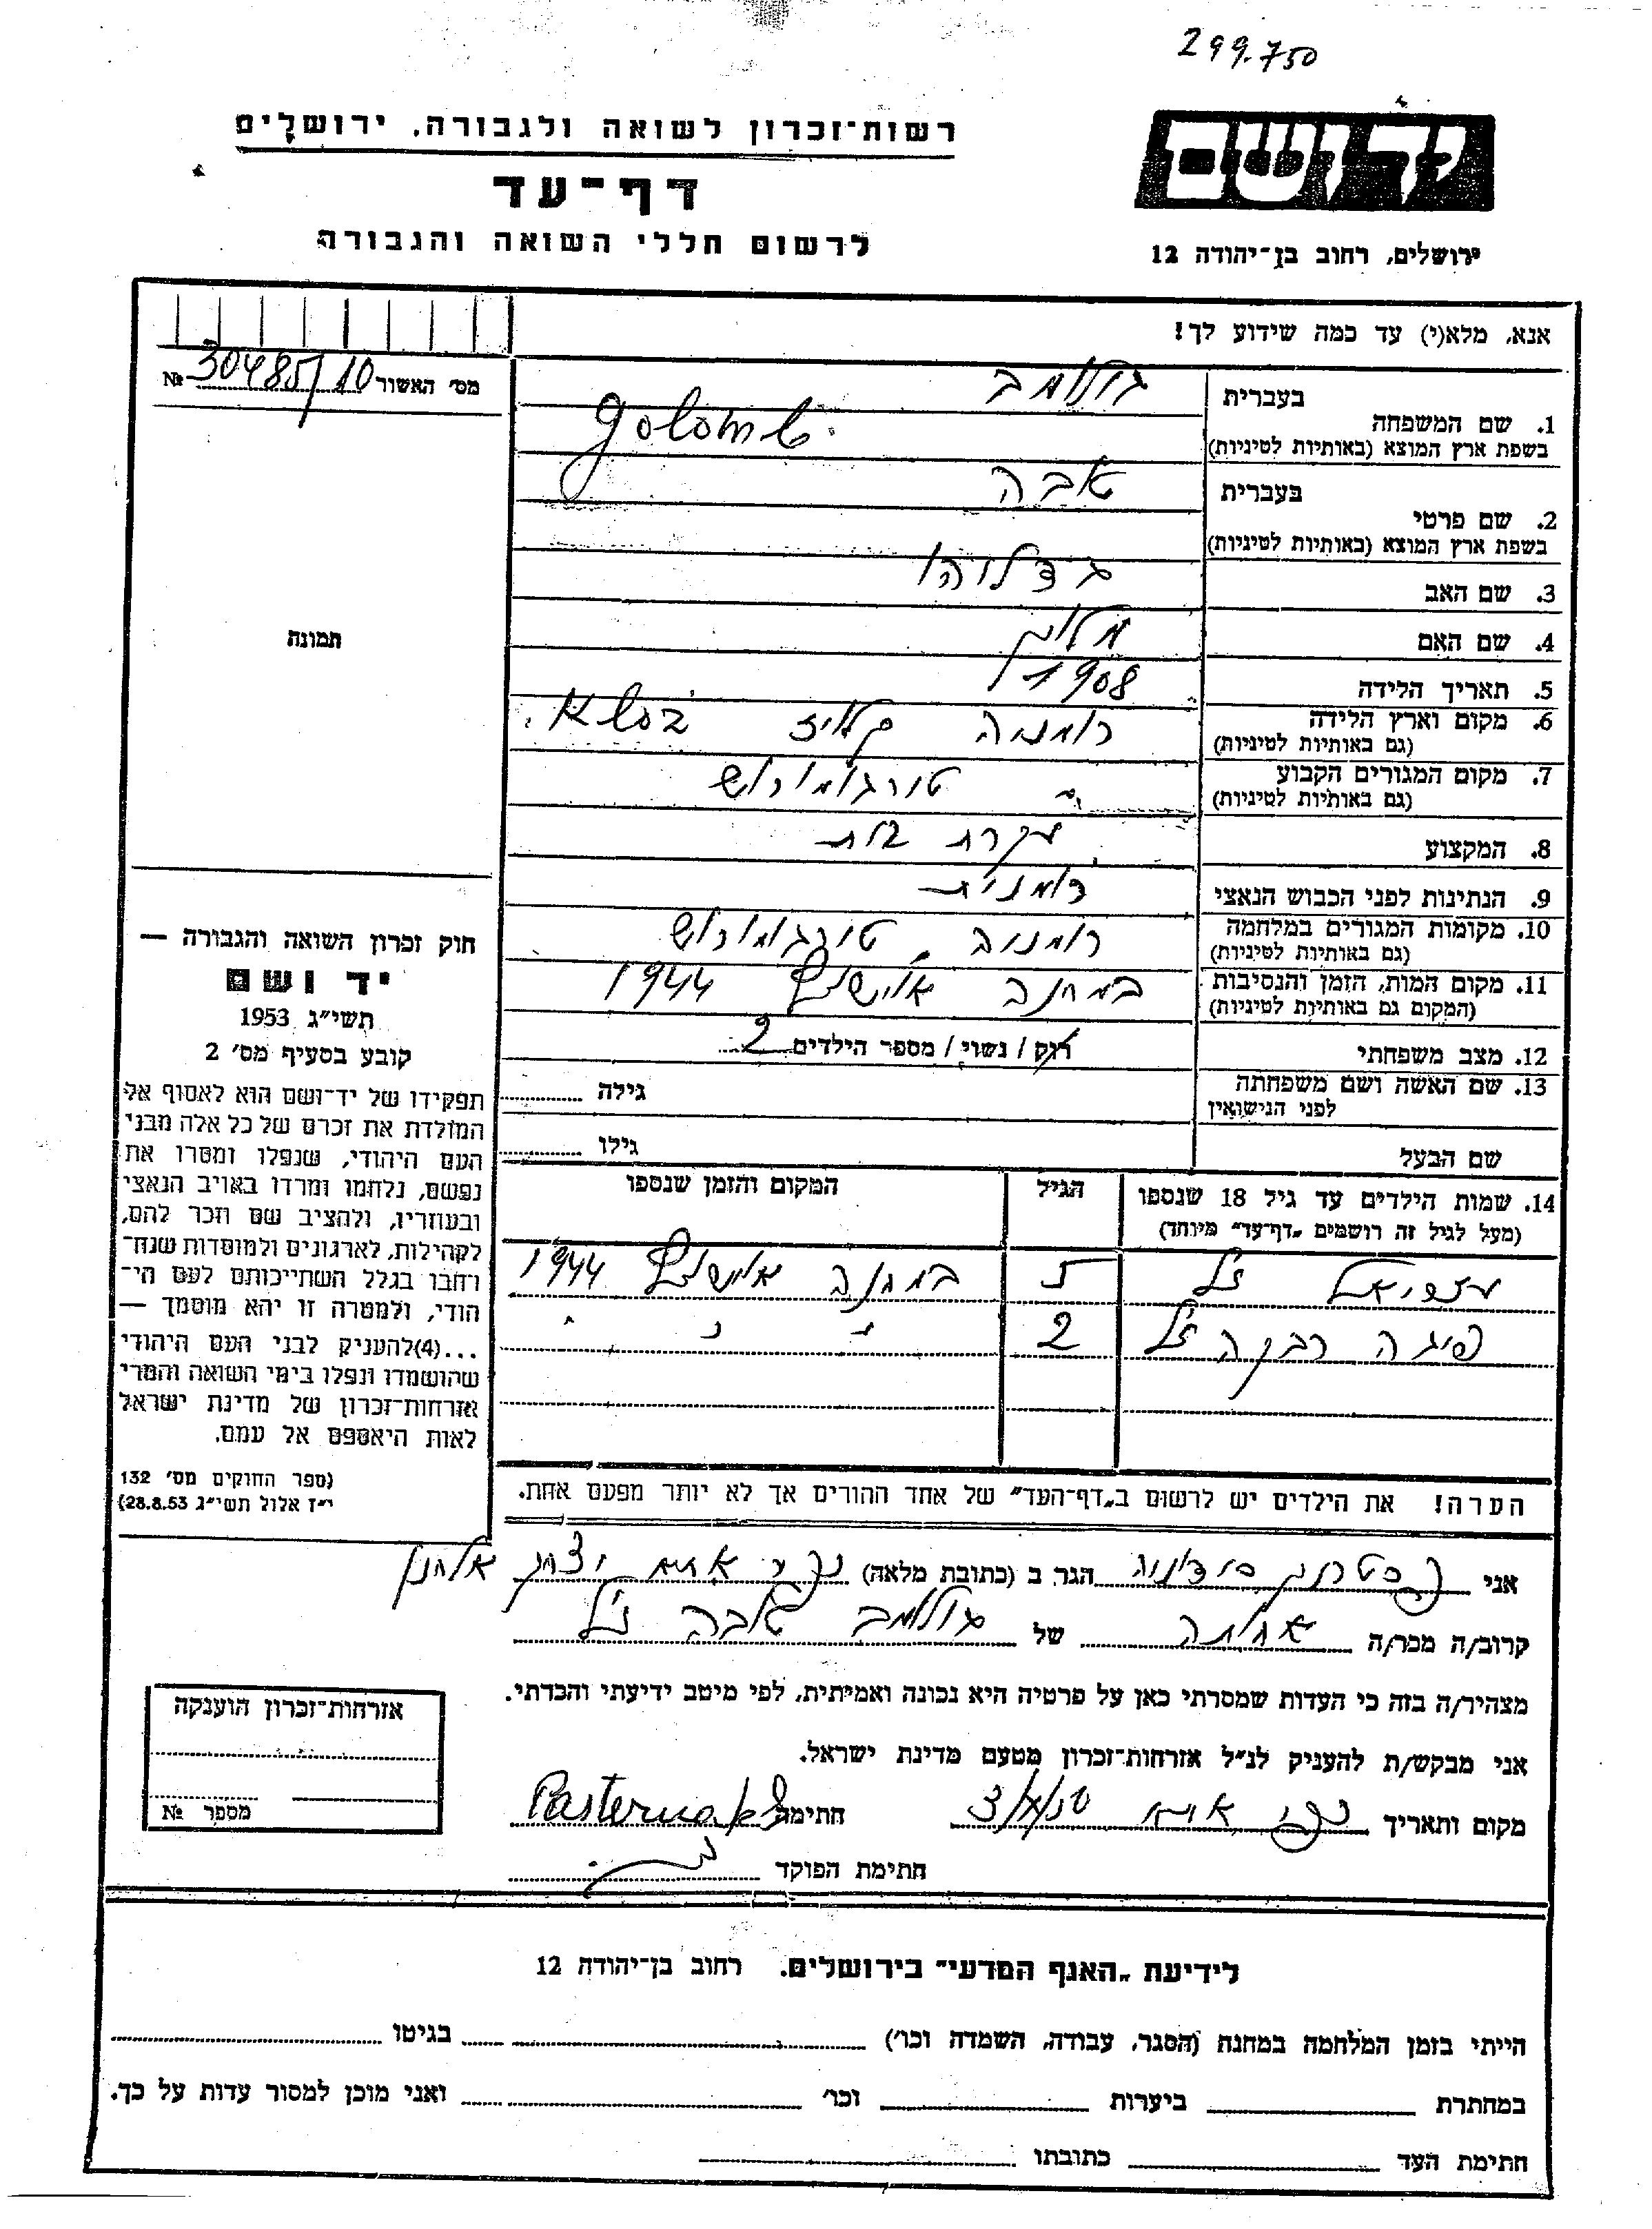 299.750
יד ושם
רשות-זכרון לשואה ולגבורה, ירושלים
דף-עד
לרשום חללי השואה והגבורה
ירושלים, רחוב בן-יהודה 12
אנא, מלא(י) עד כמה שידוע לך!
מס' האשור 30485/10 №
1. שם המשפחה בעברית גולומב
בשפת ארץ המוצא (באותיות לטיניות) Golomb
2. שם פרטי בעברית אבה
בשפת ארץ המוצא (באותיות לטיניות)
3. שם האב גדליהו
4. שם האם
5. תאריך הלידה 1908
6. מקום וארץ הלידה רומניה
(גם באותיות לטיניות)
7. מקום המגורים הקבוע טורגומורוש
(גם באותיות לטיניות)
8. המקצוע עקרת בית
9. הנתינות לפני הכבוש הנאצי רומנית
10. מקומות המגורים במלחמה רומניה טורגומורוש
(גם באותיות לטיניות)
11. מקום המות, הזמן והנסיבות במחנה אוישויץ 1944
(המקום גם באותיות לטיניות)
12. מצב משפחתי רוק / נשוי / מספר הילדים 2
13. שם האשה ושם משפחתה לפני הנישואין גילה
שם הבעל גילו
14. שמות הילדים עד גיל 18 שנספו הגיל המקום והזמן שנספו
(מעל לגיל זה רושמים „דף-עד" מיוחד)
ז"ל 5 במחנה אוישויץ 1944
פיגה רבקה ז"ל 2 " " "
הערה! את הילדים יש לרשום ב„דף-העד" של אחד ההורים אך לא יותר מפעם אחת.
תמונה
חוק זכרון השואה והגבורה —
יד ושם
תשי"ג 1953
קובע בסעיף מס' 2
תפקידו של יד-ושם הוא לאסוף אל
המולדת את זכרם של כל אלה מבני
העם היהודי, שנפלו ומסרו את
נפשם, נלחמו ומרדו באויב הנאצי
ובעוזריו, ולהציב שם וזכר להם,
לקהילות, לארגונים ולמוסדות שנח-
רבו בגלל השתייכותם לעם הי-
הודי, ולמטרה זו יהא מוסמך —
...(4)להעניק לבני העם היהודי
שהושמדו ונפלו בימי השואה והמרי
אזרחות-זכרון של מדינת ישראל
לאות היאספם אל עמם.
(ספר החוקים מס' 132
י"ז אלול תשי"ג 28.8.53)
אני פסטרנק הגר ב (כתובת מלאה) יצחק אלחנן
קרוב/ה מכר/ה אחותה של גולומב אבה ז"ל
מצהיר/ה בזה כי העדות שמסרתי כאן על פרטיה היא נכונה ואמיתית, לפי מיטב ידיעתי והכרתי.
אני מבקש/ת להעניק לנ"ל אזרחות-זכרון מטעם מדינת ישראל.
מקום ותאריך חתימה Pasternak
חתימת הפוקד
אזרחות-זכרון הוענקה
מספר №
לידיעת „האגף המדעי" בירושלים. רחוב בן-יהודה 12
הייתי בזמן המלחמה במחנה (הסגר, עבודה, השמדה וכו') בגיטו
במחתרת ביערות וכו' ואני מוכן למסור עדות על כך.
חתימת העד כתובתו